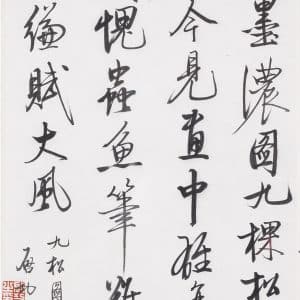 墨濃圖九棵松
今見畫中雄
愧蟲魚筆難
賦大風
九松圖
启功